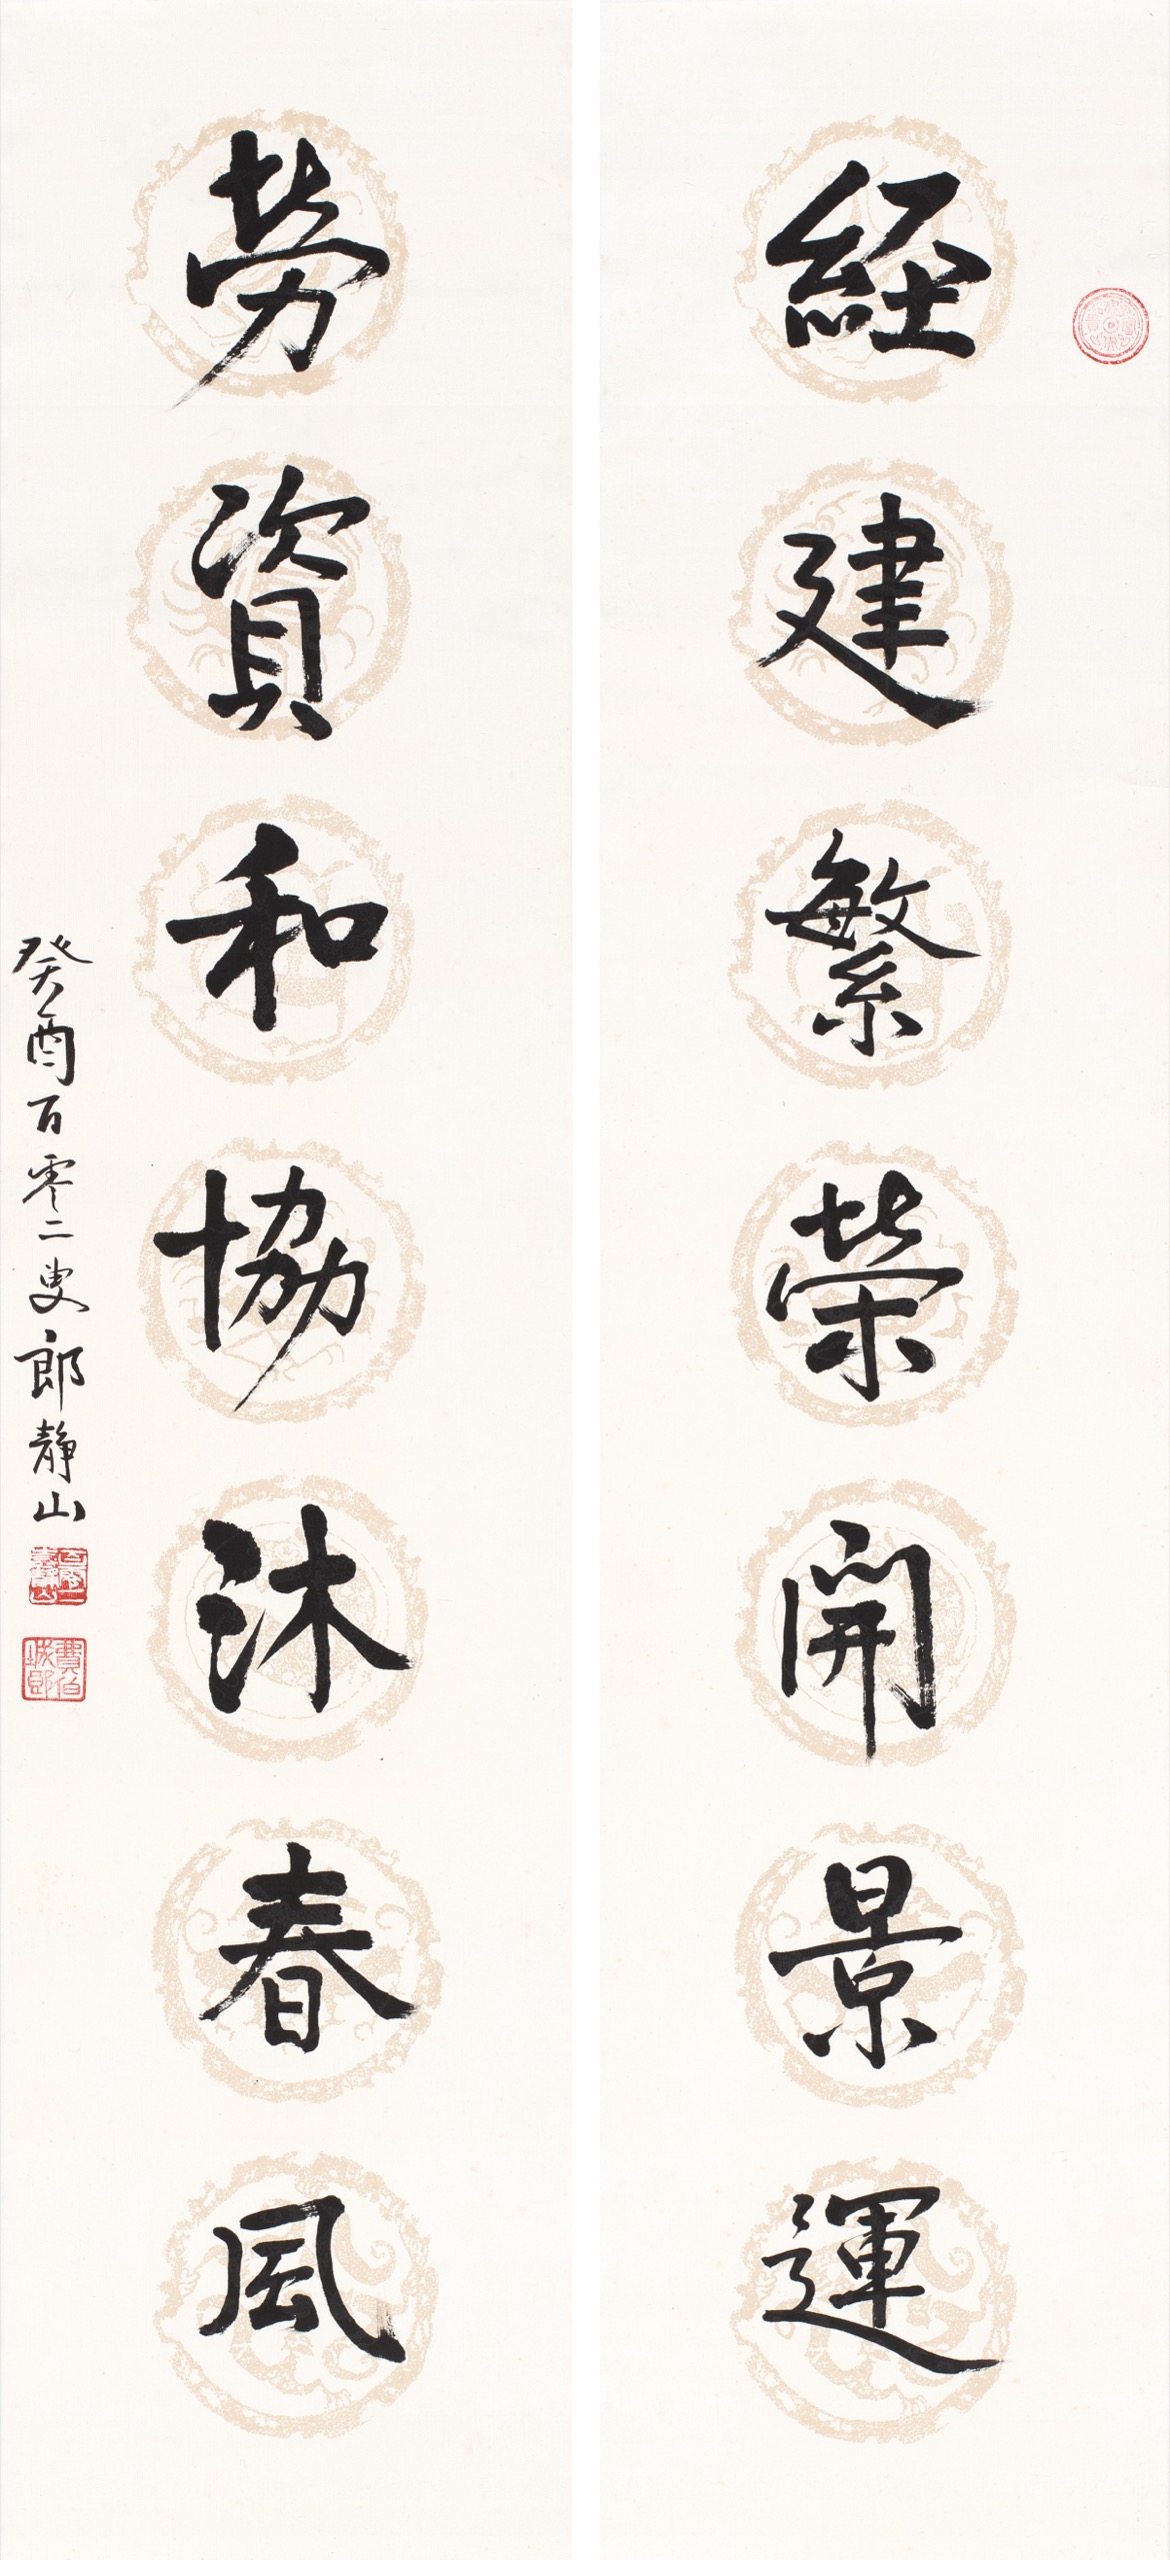 經建繁荣開景運
劳資和協沐春風
癸酉百零二叟郎靜山
費伯
城郎